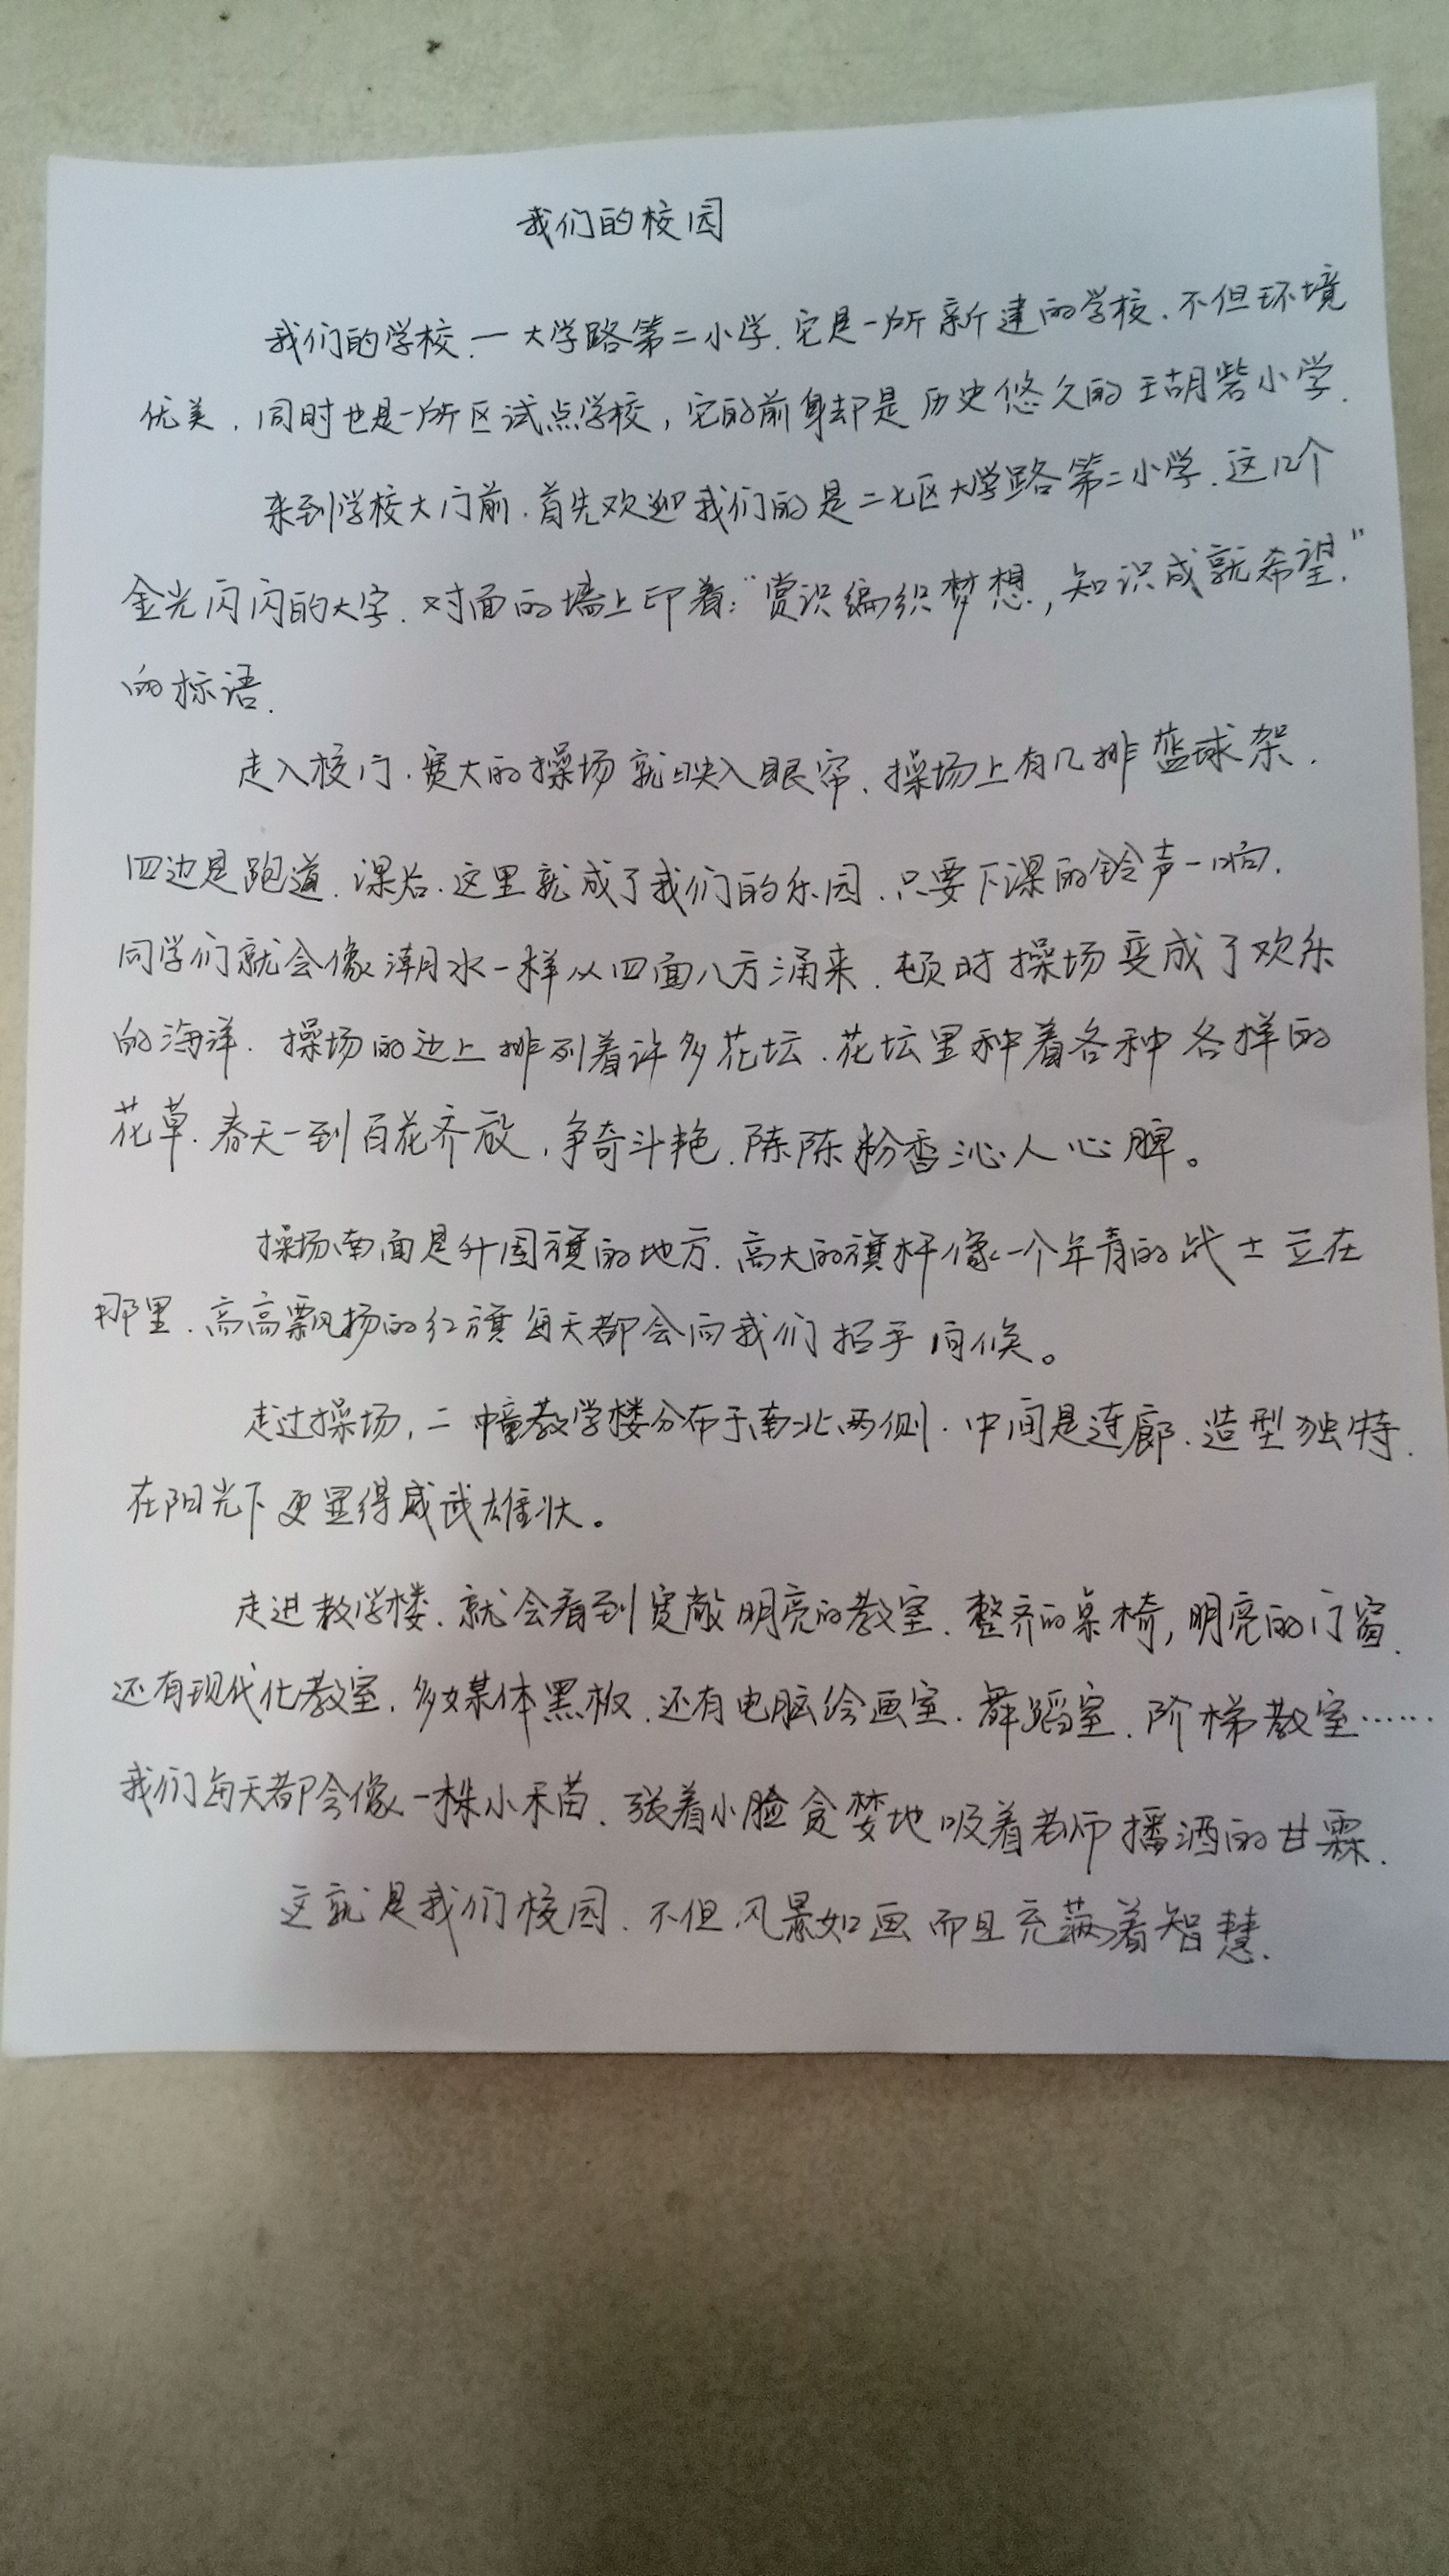 我们的校园
我们的学校.一大学路第二小学.它是一所新建的学校.不但环境
优美.同时也是一所区试点学校,它的前身却是历史悠久的王胡砦小学.
来到学校大门前.首先欢迎我们的是二七区大学路第二小学.这12个
金光闪闪的大字.对面的墙上印着:“赏识编织梦想,知识成就希望.”
的标语.
走入校门.宽大的操场就映入眼帘.操场上有几排篮球架.
四边是跑道.课后.这里就成了我们的乐园.只要下课的铃声一响.
同学们就会像潮水一样从四面八方涌来.顿时操场变成了欢乐
的海洋.操场的边上排列着许多花坛.花坛里种着各种各样的
花草.春天一到百花齐放,争奇斗艳.陈陈粉香沁人心脾。
操场南面是升国旗的地方.高大的旗杆像一个年青的战士立在
那里.高高飘扬的红旗每天都会向我们招手问候。
走过操场,二幢教学楼分布于南北两侧.中间是连廊.造型独特.
在阳光下更显得威武雄壮。
走进教学楼.就会看到宽敞明亮的教室.整齐的桌椅,明亮的门窗.
还有现代化教室.多媒体黑板.还有电脑绘画室.舞蹈室.阶梯教室……
我们每天都会像一株小禾苗.张着小脸贪婪地吸着老师播洒的甘霖.
这就是我们校园.不但风景如画而且充满着智慧.